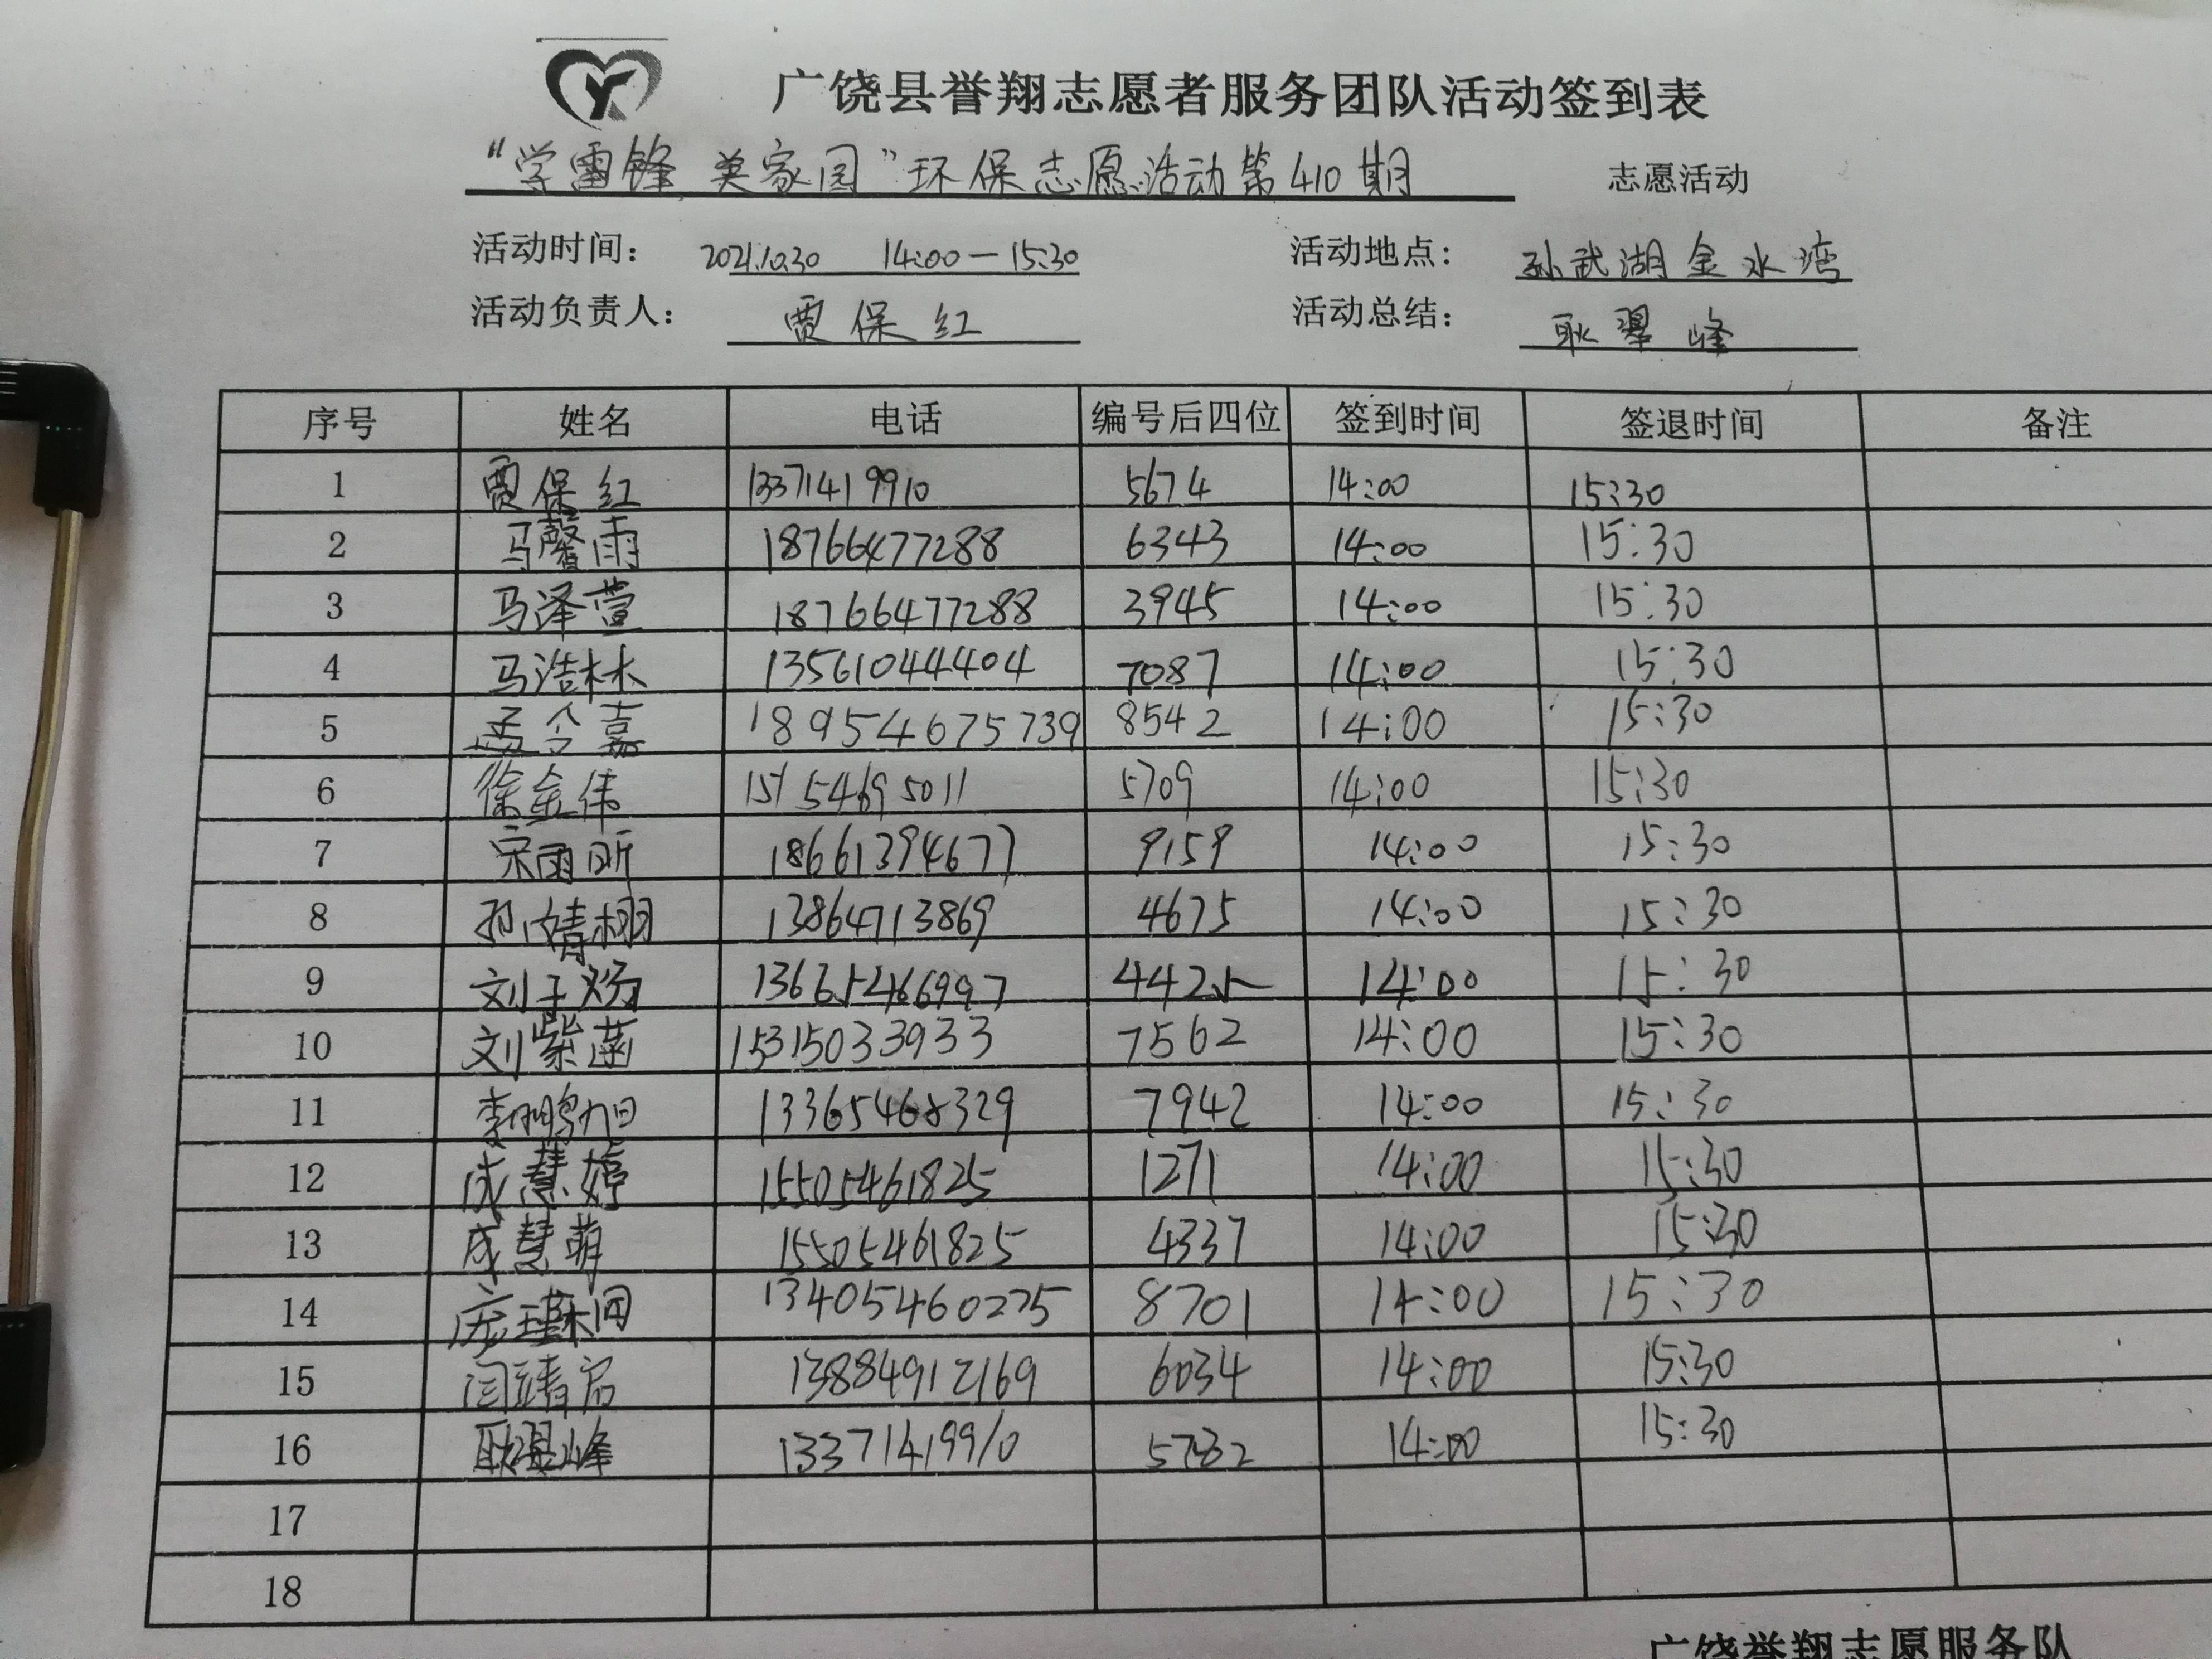 广饶县誉翔志愿者服务团队活动签到表
“学雷锋,美家园”环保志愿活动第410期 志愿活动
活动时间: 2021.10.30 14:00—15:30 活动地点: 孙武湖金水湾
活动负责人: 贾保红 活动总结: 耿翠峰
序号 姓名 电话 编号后四位 签到时间 签退时间 备注
1 贾保红 13371419910 5674 14:00 15:30
2 马馨雨 18766477288 6343 14:00 15:30
3 马泽萱 18766477288 3945 14:00 15:30
4 马浩林 13561044404 7087 14:00 15:30
5 孟令嘉 18954675739 8542 14:00 15:30
6 徐金伟 15154695011 5709 14:00 15:30
7 宋雨昕 18661394677 9159 14:00 15:30
8 孙婧栩 13864713869 4675 14:00 15:30
9 刘子炀 13665466997 4425 14:00 15:30
10 刘紫菡 15315033933 7562 14:00 15:30
11 李鹏旭 13365468329 7942 14:00 15:30
12 成慧婷 15505461825 1271 14:00 15:30
13 成慧萌 15505461825 4337 14:00 15:30
14 13405460275 8701 14:00 15:30
15 闫靖宸 13884912169 6034 14:00 15:30
16 耿翠峰 13371419910 5782 14:00 15:30
17
18
广饶誉翔志愿服务队